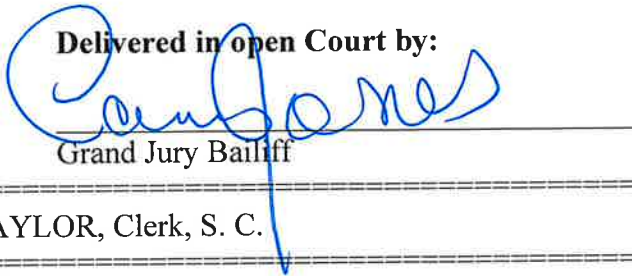 Delivered in open Court by:
Jones
Grand Jury Bailiff
AYLOR, Clerk, S. C.